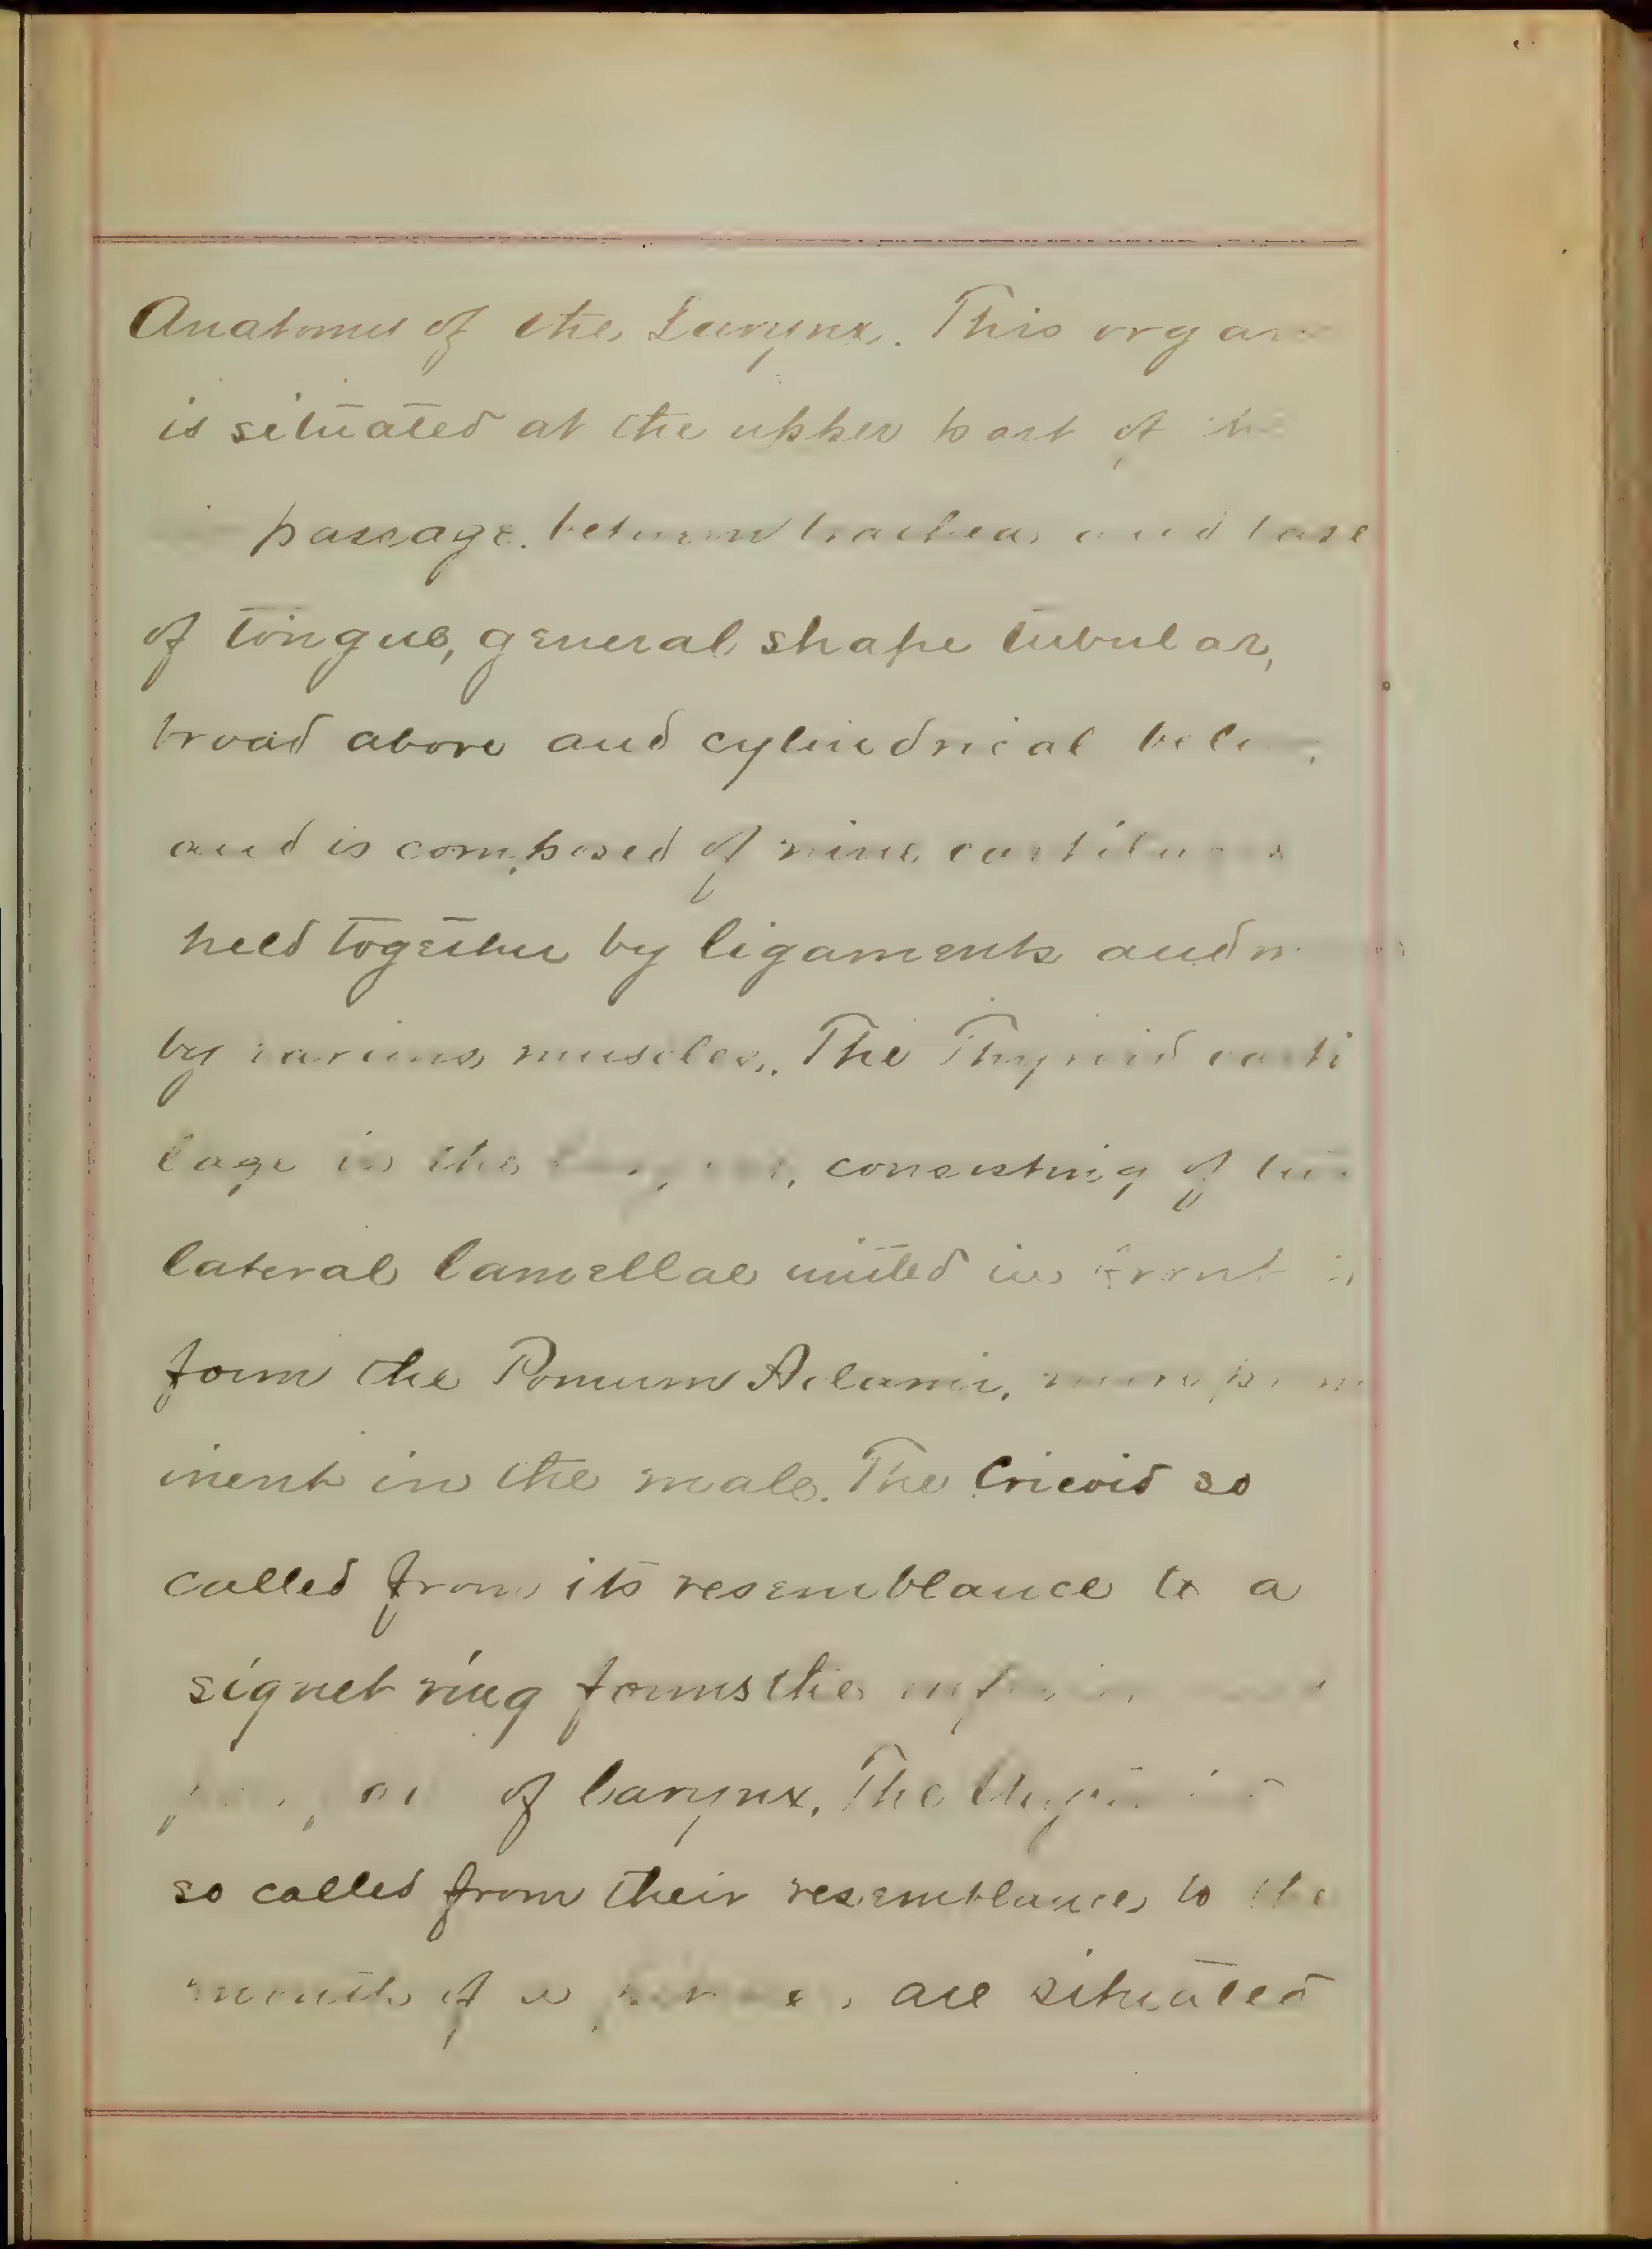 Anatomy of the Larynx. This organ
is situated at the upper part of the
passage. between trachea and base
of tongue, general shape tubular,
broad above and cylindrical below,
and is composed of nine cartilages
held together by ligaments and
by various muscles. The Thyroid carti
lage is the consisting of two
lateral lamellae united in front
form the Pomum Adami, more prom
inent in the male. The Cricoid so
called from its resemblance to a
signet ring forms the
of larynx. The
so called from their resemblance to the
mouth of a are situated